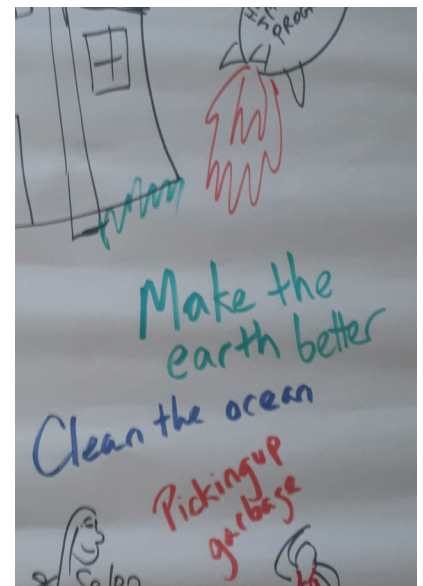 Make the
earth better
Clean the ocean
Picking up
garbage